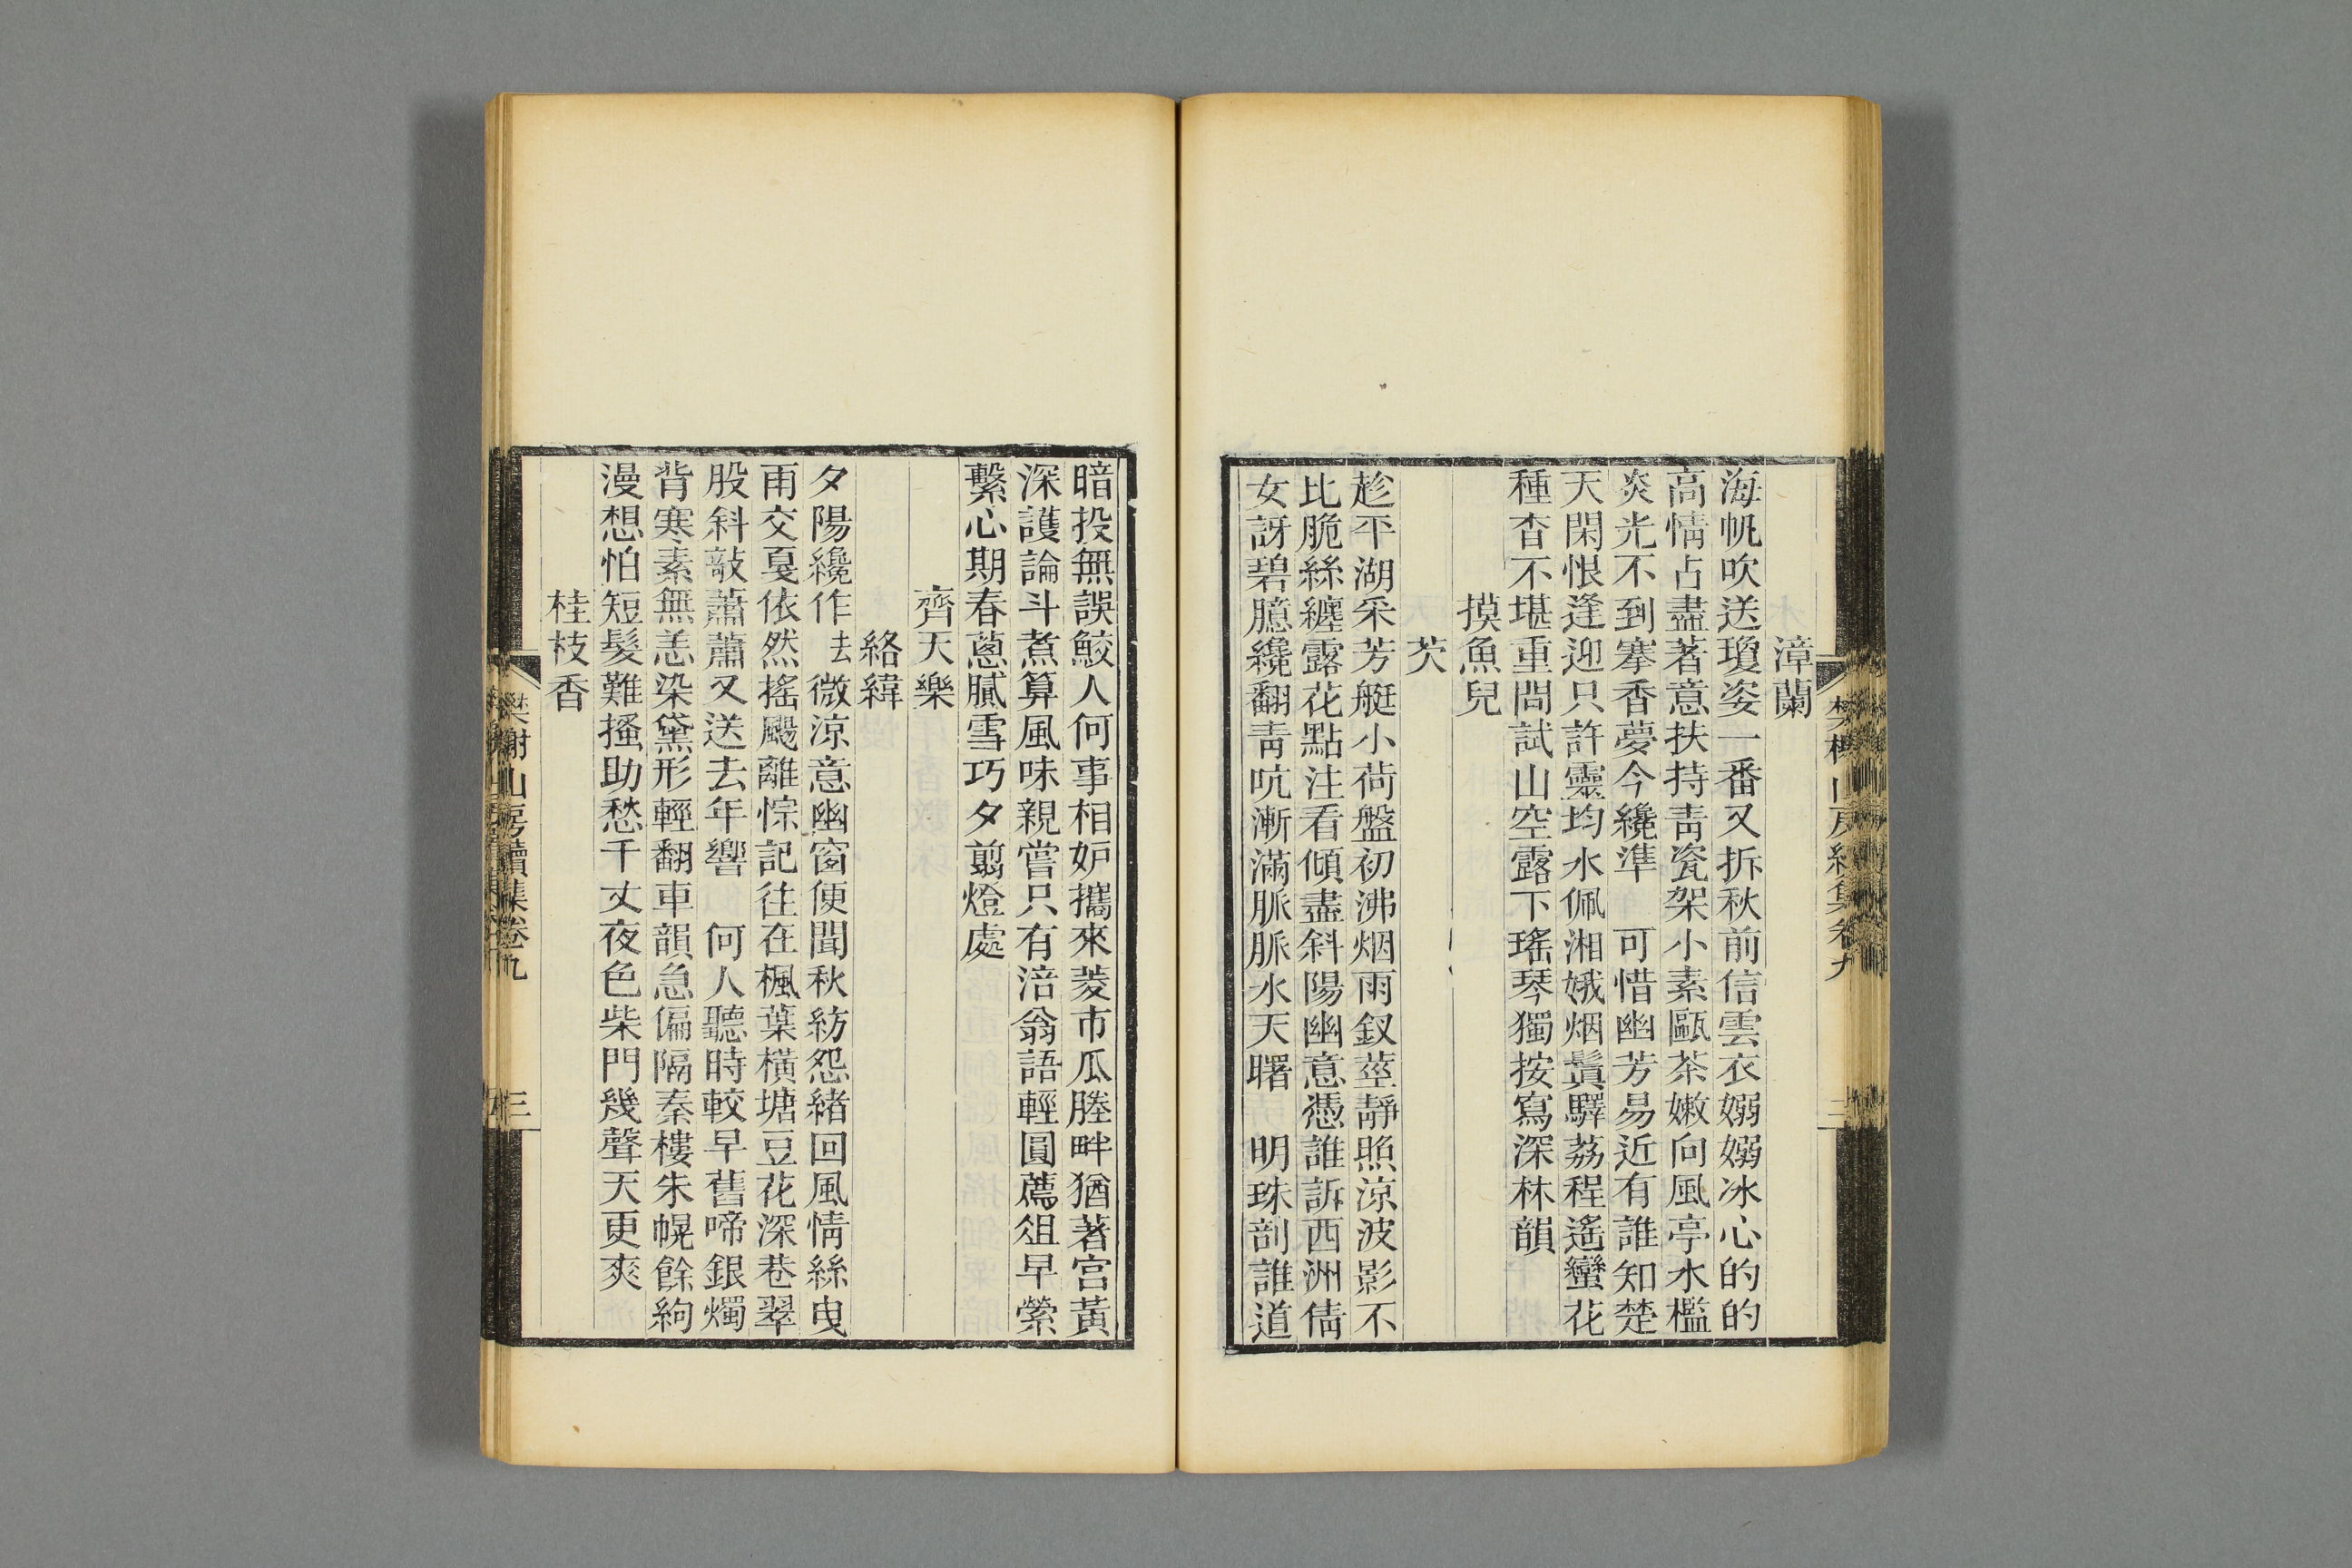 漳蘭
海帆吹送瓊姿一番又拆秋前信雲衣嫋嫋冰心的的
高情占盡著意扶持靑瓷架小素甌茶嫩向風亭水檻
炎光不到搴香夢今纔準　可惜幽芳易近有誰知楚
天閑恨逢迎只許靈均水佩湘娥烟鬢驛荔程遙蠻花
種杳不堪重問試山空露下瑤琴獨按寫深林韻
摸魚兒
芡
趁平湖采芳艇小荷盤初沸烟雨釵莖靜照涼波影不
比脆絲纏露花點注看傾盡斜陽幽意憑誰訴西洲倩
女訝碧臆纔翻靑吭漸滿脈脈水天曙　明珠剖誰道
暗投無誤鮫人何事相妒攜來菱市瓜塍畔猶著宮黃
深護論斗煮算風味親嘗只有涪翁語輕圓薦俎早縈
繫心期春蔥膩雪巧夕翦燈處
齊天樂
絡緯
夕陽纔作去微涼意幽窗便聞秋紡怨緒回風情絲曳
雨交戛依然搖颺離悰記往在楓葉橫塘豆花深巷翠
股斜敲蕭蕭又送去年響　何人聽時較早舊啼銀燭
背寒素無恙染黛形輕翻車韻急偏隔秦樓朱幌餘絢
漫想怕短髮難搔助愁千丈夜色柴門幾聲天更爽
桂枝香
樊榭山房續集卷九
三